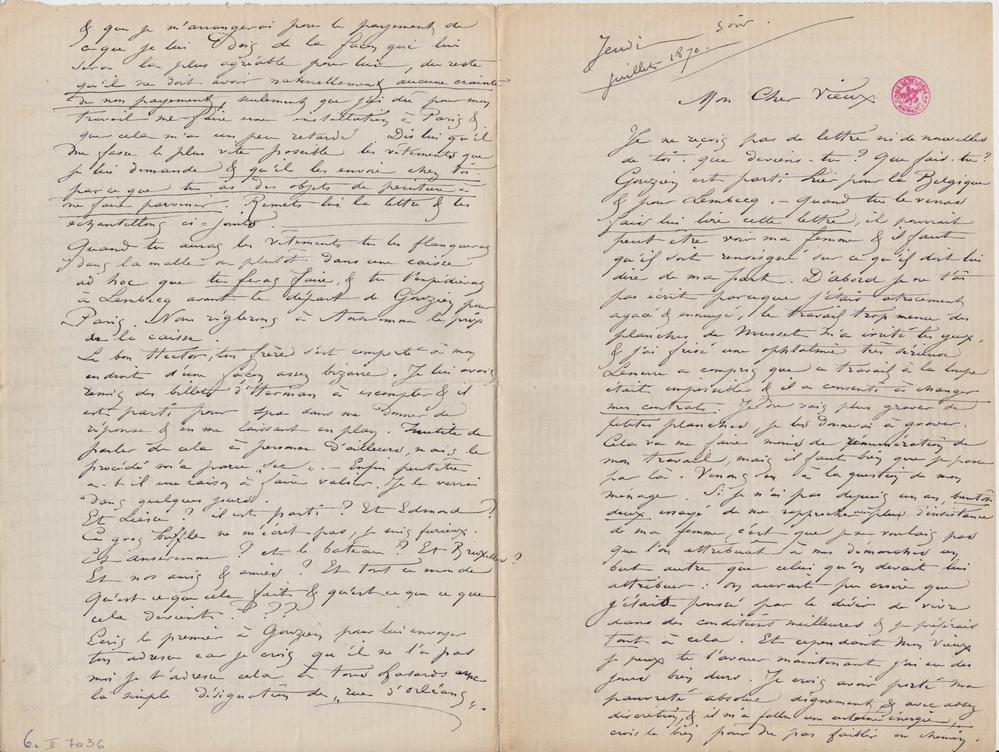 Jeudi soir
juillet 1870.
Mon Cher Vieux
Je ne reçois pas de lettre ni de nouvelles
de toi. que deviens-tu? Que fais-tu?
Gouzien est parti hier pour la Belgique
& pour Lembecq. — Quand tu le verras
fais lui lire cette lettre, il pourrait
peut etre voir ma femme & il faut
qu'il soit renseigné sur ce qu'il doit lui
dire de ma part. D'abord je ne t'ai
pas écrit parceque j'étais atrocement
agacé & ennuyé, le travail trop menu des
planches de Musset m'a éreinté les yeux,
& j'ai frisé une ophtalmie très sérieuse
Lemerre a compris que ce travail à la loupe
était impossible & il a consenti à changer
mes contrats. Je ne vais plus graver de
petites planches, je les donnerai à graver.
Cela va me faire moins de rémunération de
mon travail, mais il faut bien que je passe
par là. Venons en à la question de mon
ménage. Si je n'ai pas depuis un an, bientôt
deux essayé de me rapprocher plus d'instance
de ma femme, c'est que je ne voulais pas
que l'on attribuat à mes démarches un
but autre que celui qu'on devait lui
attribuer : on aurait pu croire que
j'étais poussé par le désir de vivre
dans des conditions meilleures & je préférais
tout à cela. Et cependant mon vieux
je peux te l'avouer maintenant j'ai eu des
jours bien durs. Je crois avoir porté ma
pauvreté absolue dignement, & avec assez
discrétion, & il m'a fallu une certaine énergie,
crois le bien, pour ne pas faiblir en chemin.
& que je m'arrangerai pour le payement de
ce que je lui dois de la façon qui lui
sera la plus agréable pour lui, du reste
qu'il ne doit avoir naturellement aucune crainte
de non payement, seulement que j'ai dû pour mon
travail me faire une installation à Paris &
que cela m'a un peu retardé. Dis lui qu'il
me fasse le plus vite possible les vêtements que
je lui demande & qu'il les envoie chez toi
parce que tu as des objets de peinture à
me faire parvenir. Remets lui la lettre & les
échantillons ci-joints.
Quand tu auras les vêtements tu les flanqueras
dans la malle ou plutôt dans une caisse
ad hoc que tu feras faire, & tu l'expédieras
à Lembecq avant le départ de Gouzien pour
Paris. Nous règlerons à Anseremme le prix
de la caisse.
Le bon Hector, ton frère s'est comporté à mon
endroit d'une façon assez bizarre. Je lui avais
remis des billets d'Herman à escompter & il
est parti pour spa sans me donner de
réponse & en me laissant en plan. Inutile de
parler de cela à personne d'ailleurs, mais le
procédé m'a paru „sec". — Enfin peut être
a-t-il une raison à faire valoir. Je le verrai
dans quelques jours.
Et Liesse? il est parti? Et Edmond?
Ce gros buffle ne m'écrit pas, je suis furieux.
Et anseremme? et le bateau? Et Bruxelles?
Et nos amis & amies? Et tout ce monde
qu'est ce que cela fait & qu'est ce que ce que
cela devient. ? ??
Ecris le premier à Gouzien pour lui envoyer
ton adresse car je crois qu'il ne l'a pas
moi je t'adresse cela à tous hasards avec
la simple désignation de „rue d'orléans".
6. II 7036